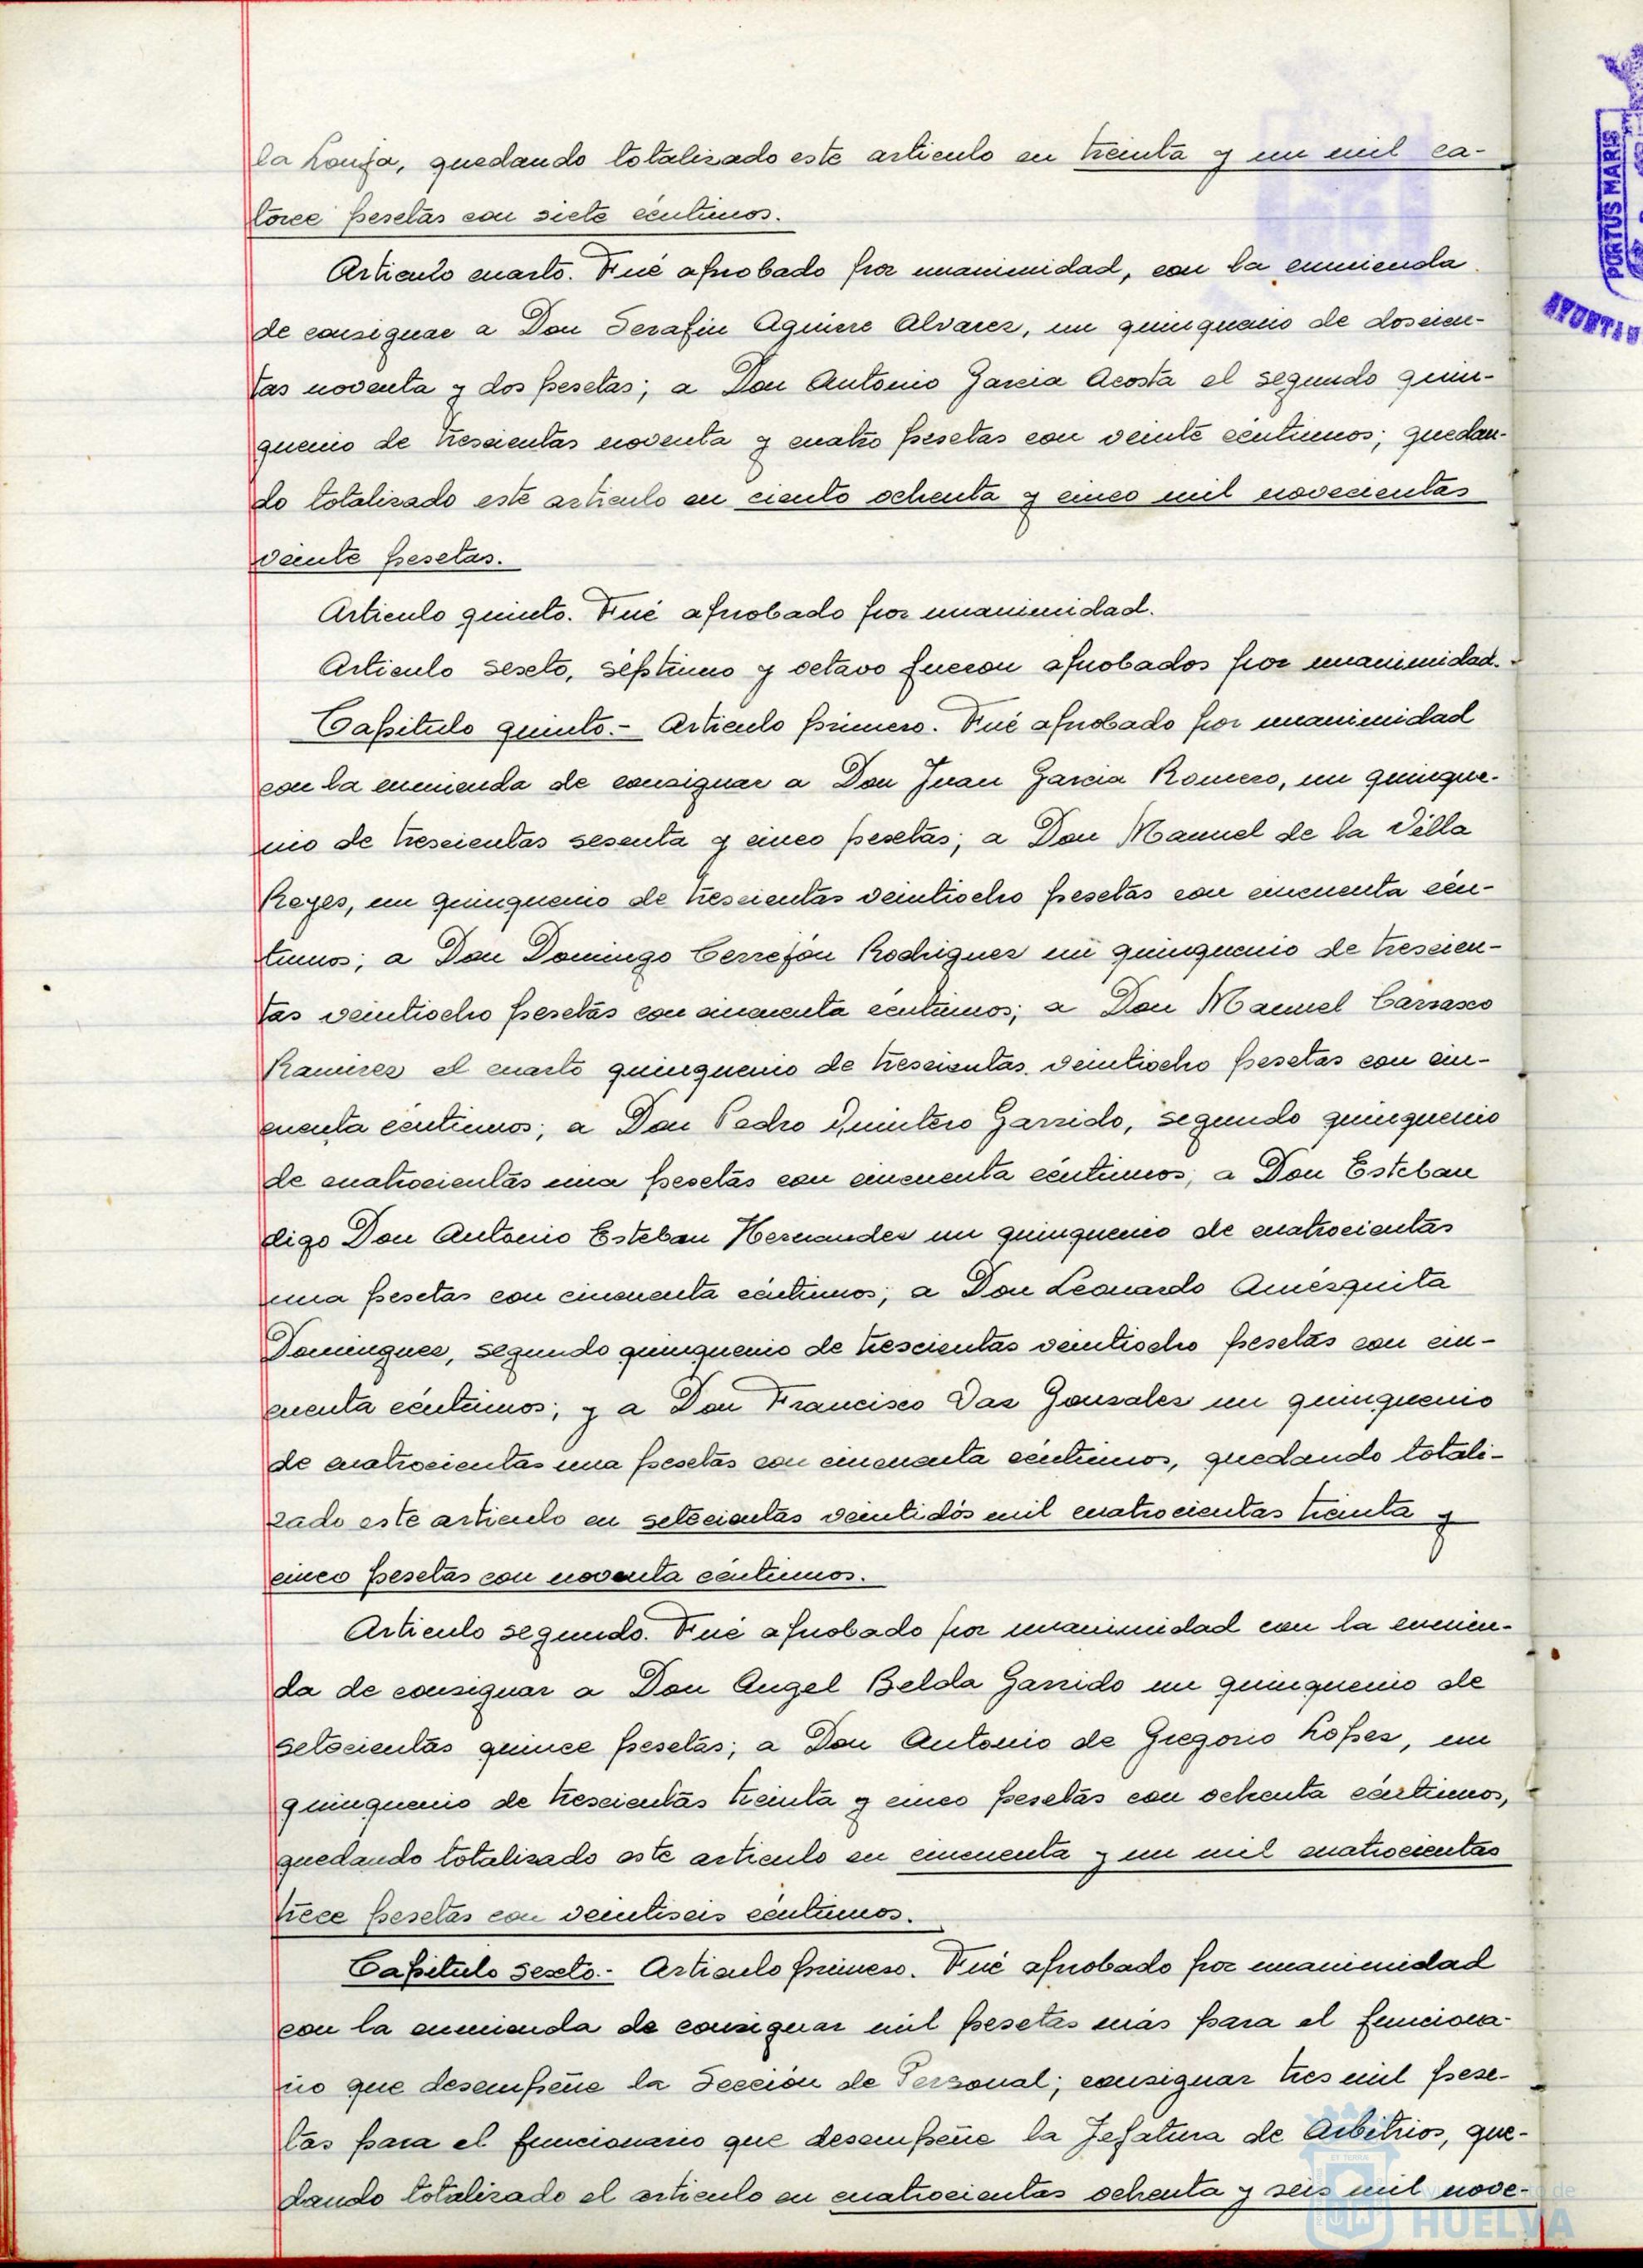 la Lonja, quedando totalizado este articulo en treinta y un mil ca-
torce pesetas con siete céntimos.
Articulo cuarto. Fué aprobado por unanimidad, con la enmienda
de consignar a Don Serafin Aguirre Alvarez, un quinquenio de doscien-
tas noventa y dos pesetas; a Don Antonio Garcia Acosta el segundo quin-
quenio de trescientas noventa y cuatro pesetas con veinte céntimos; quedan-
do totalizado este articulo en ciento ochenta y cinco mil novecientas
veinte pesetas.
Articulo quinto. Fué aprobado por unanimidad.
Articulo sexto, séptimo y octavo fueron aprobados por unanimidad.
Capitulo quinto.- Articulo primero. Fué aprobado por unanimidad
con la enmienda de consignar a Don Juan Garcia Romero, un quinque-
nio de trescientas sesenta y cinco pesetas; a Don Manuel de la Villa
Reyes, un quinquenio de trescientas veintiocho pesetas con cincuenta cén-
timos; a Don Domingo Cerrejón Rodriguez un quinquenio de trescien-
tas veintiocho pesetas con cincuenta centimos; a Don Manuel Carrasco
Ramirez el cuarto quinquenio de trescientas veintiocho pesetas con cin-
cuenta céntimos; a Don Pedro Quintero Garrido, segundo quinquenio
de cuatrocientas una pesetas con cincuenta céntimos; a Don Esteban
digo Don Antonio Esteban Hernandez un quinquenio de cuatrocientas
una pesetas con cincuenta céntimos; a Don Leonardo Amézquita
Dominguez, segundo quinquenio de trescientas veintiocho pesetas con cin-
cuenta céntimos; y a Don Francisco Vaz Gonzalez un quinquenio
de cuatrocientas una pesetas con cincuenta céntimos, quedando totali-
zado este articulo en setecientas veintidós mil cuatrocientas treinta y
cinco pesetas con noventa céntimos.
Articulo segundo. Fué aprobado por unanimidad con la enmien-
da de consignar a Don Angel Belda Garrido un quinquenio de
setecientas quince pesetas; a Don Antonio de Gregorio Lopez, un
quinquenio de trescientas treinta y cinco pesetas con ochenta céntimos,
quedando totalizado este articulo en cincuenta y un mil cuatrocientas
trece pesetas con veintiseis céntimos.
Capitulo sexto.- Articulo primero. Fué aprobado por unanimidad
con la enmienda de consignar mil pesetas más para el funciona-
rio que desempeñe la Sección de Personal; consignar tres mil pese-
tas para el funcionario que desempeñe la Jefatura de Arbitrios, que-
dando totalizado el articulo en cuatrocientas ochenta y seis mil nove-
PORTUS MARIS
HUELVA